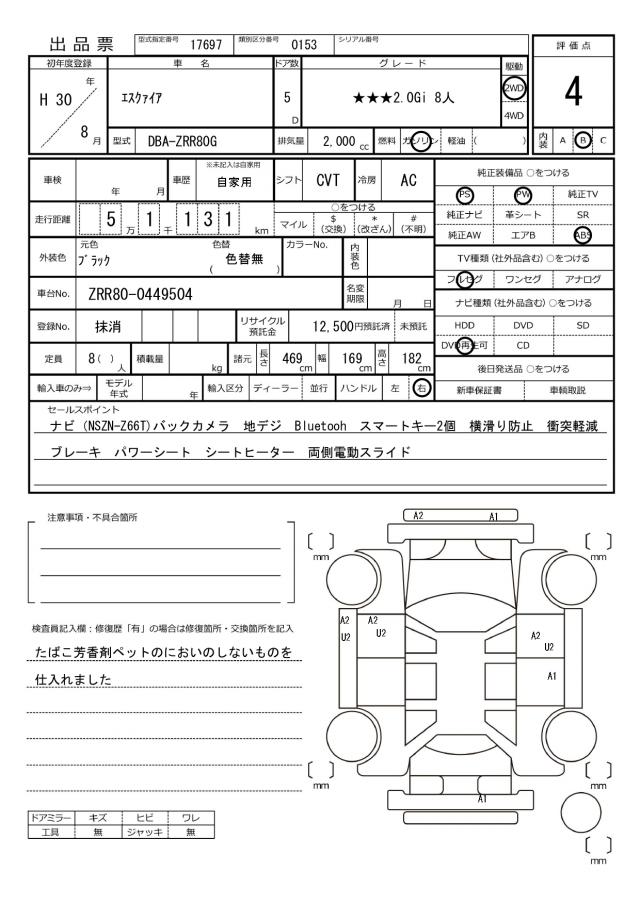 出品票
型式指定番号 17697 類別区分番号 0153 シリアル番号
評価点
4
初年度登録 車名 ドア数 グレード 駆動
H 30 年 8 月
エスクァイア
5 D
★★★2.0Gi 8人
2WD
4WD
型式 DBA-ZRR80G 排気量 2,000 cc 燃料 ガソリン 軽油 ( )
内装 A B C
車検 年 月 車歴 ※未記入は自家用 自家用 シフト CVT 冷房 AC
純正装備品 ○をつける
PS PW 純正TV
純正ナビ 革シート SR
純正AW エアB ABS
走行距離 5 万 1 千 1 3 1 km
○をつける
マイル $ (交換) * (改ざん) # (不明)
外装色 元色 ブラック 色替 ( 色替無 ) カラーNo. 内装色
TV種類 (社外品含む) ○をつける
フルセグ ワンセグ アナログ
車台No. ZRR80-0449504 名変期限 月 日
ナビ種類 (社外品含む) ○をつける
HDD DVD SD
DVD再生可 CD
登録No. 抹消 リサイクル預託金 12,500円預託済 未預託
定員 8 ( ) 人 積載量 kg 諸元 長さ 469 cm 幅 169 cm 高さ 182 cm
後日発送品 ○をつける
新車保証書 車輌取説
輸入車のみ⇒ モデル年式 年 輸入区分 ディーラー 並行 ハンドル 左 右
セールスポイント
ナビ (NSZN-Z66T)バックカメラ 地デジ Bluetooh スマートキー2個 横滑り防止 衝突軽減
ブレーキ パワーシート シートヒーター 両側電動スライド
注意事項・不具合箇所
検査員記入欄：修復歴「有」の場合は修復箇所・交換箇所を記入
たばこ芳香剤ペットのにおいのしないものを
仕入れました
ドアミラー キズ ヒビ ワレ
工具 無 ジャッキ 無
A2 A1
mm mm
A2 A2
U2 U2
A2
U2
A1
mm mm
A1
mm